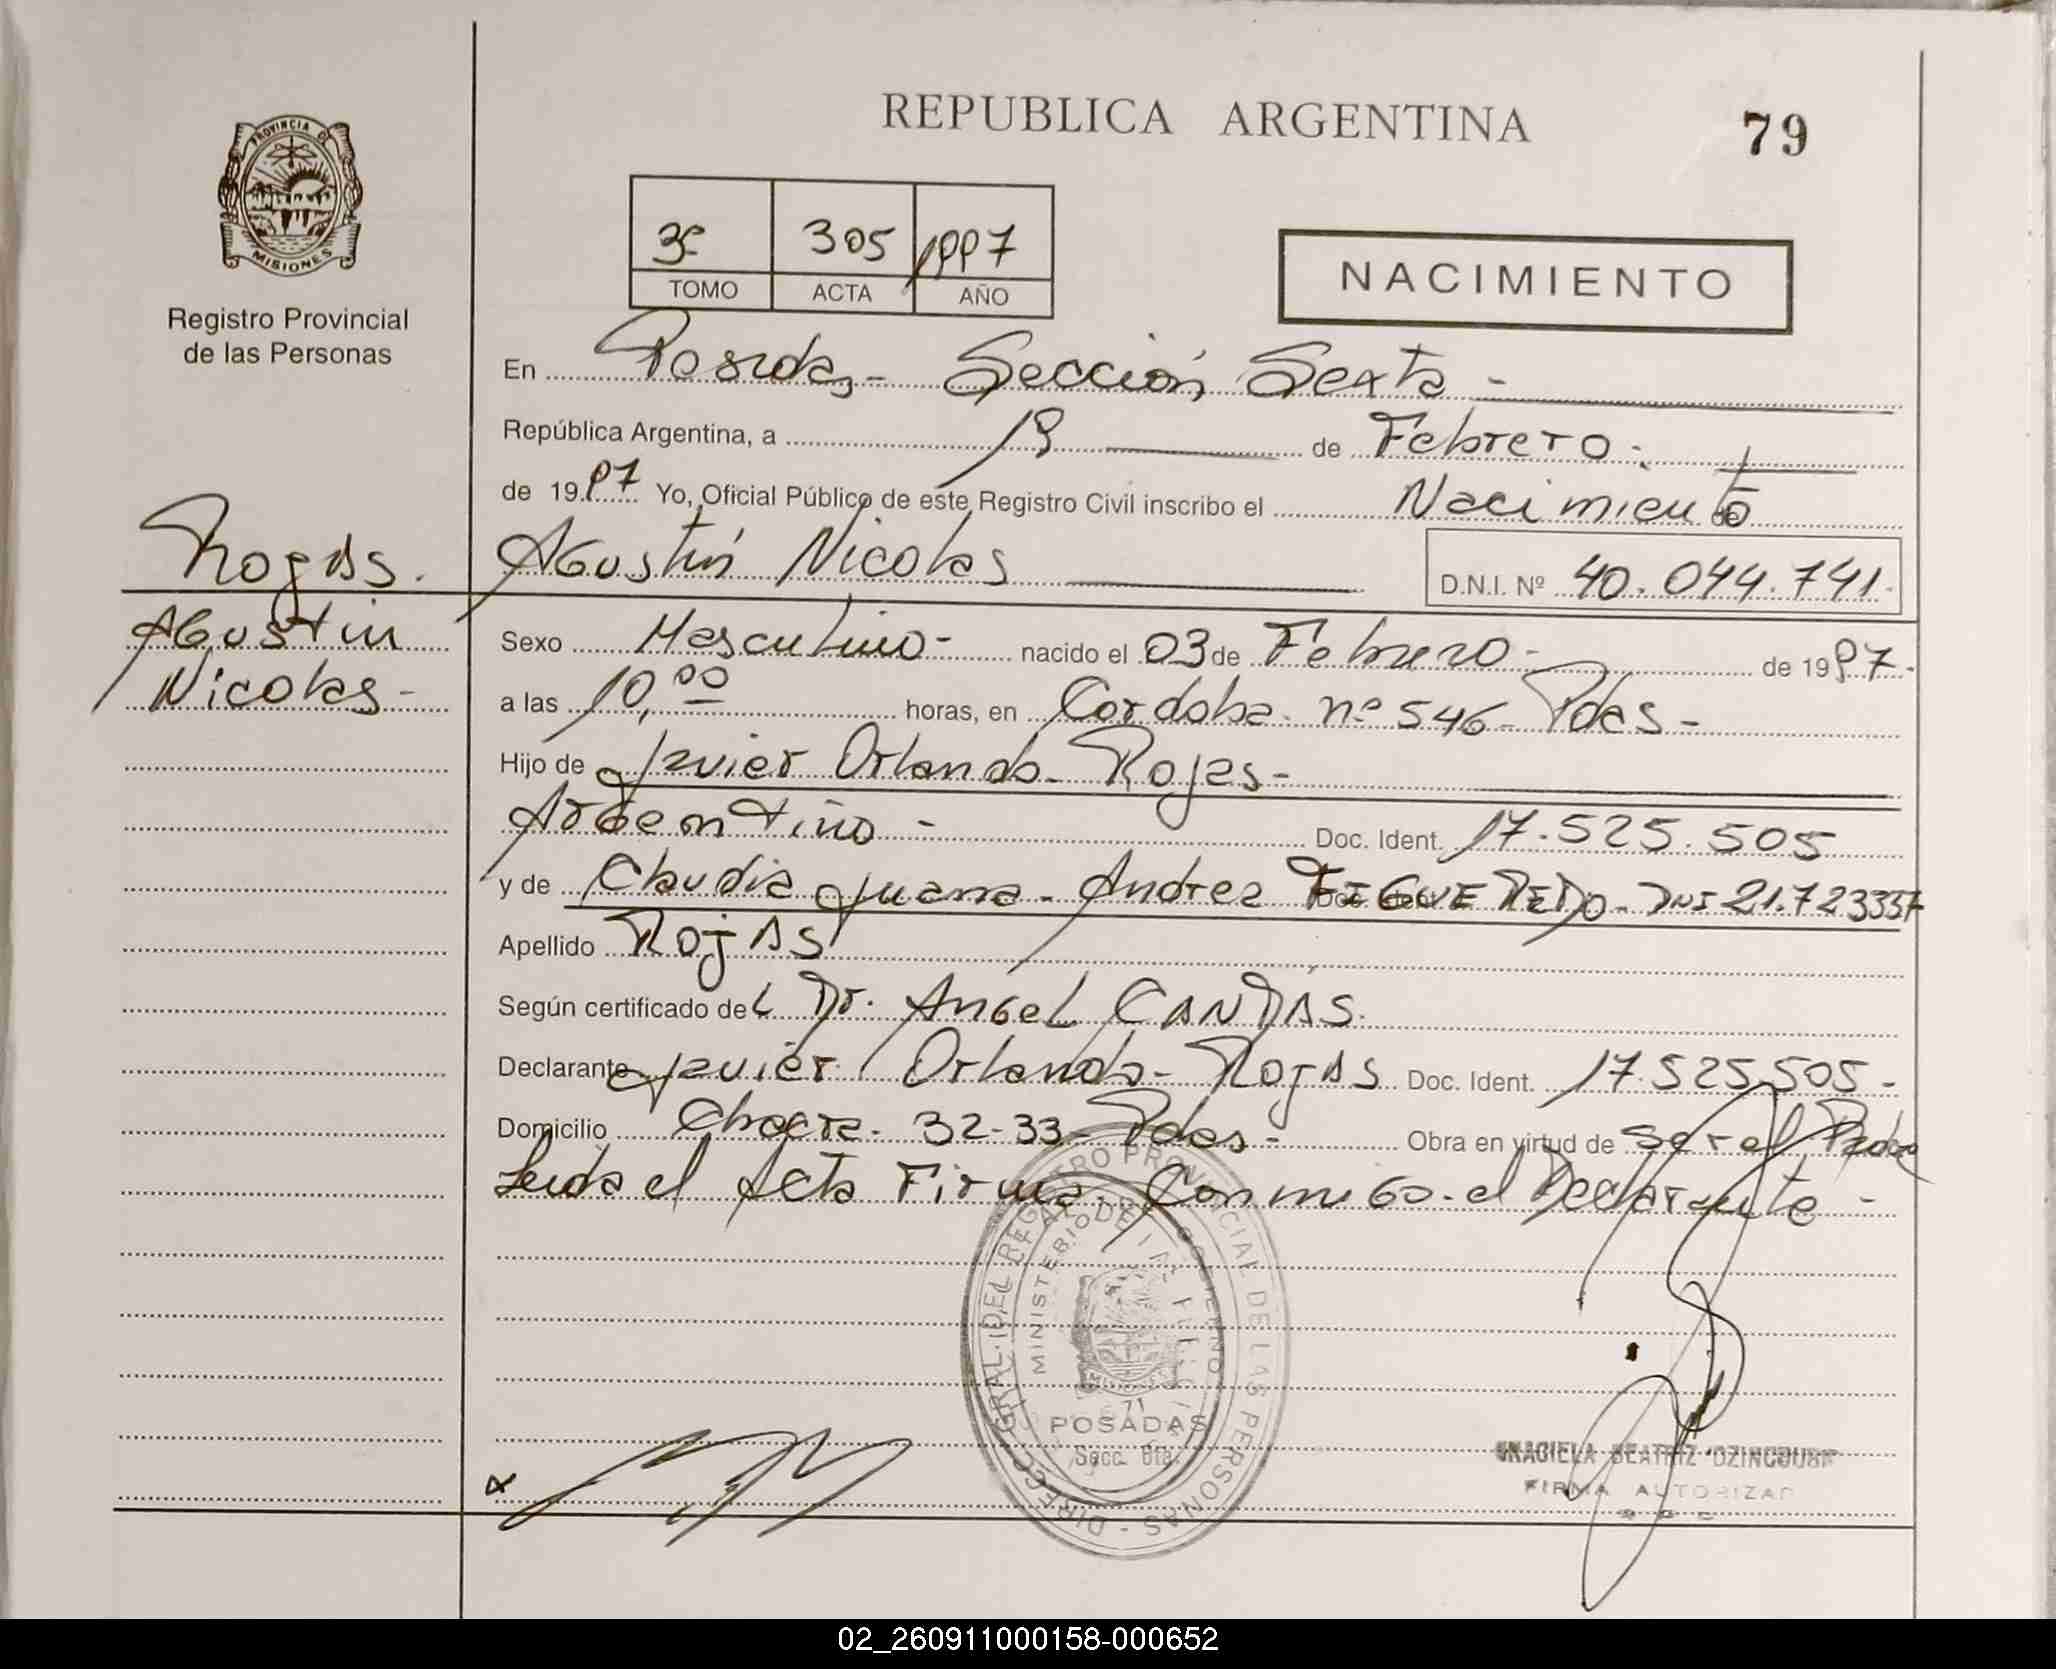 REPUBLICA ARGENTINA
79
PROVINCIA DE
MISIONES
Registro Provincial
de las Personas
3º 305 1997
TOMO ACTA AÑO
NACIMIENTO
En Posadas - Sección Sexta -
República Argentina, a 19 de Febrero.
de 1997 Yo, Oficial Público de este Registro Civil inscribo el Nacimiento de
Agustín Nicolas D.N.I. Nº 40.044.741.
Rojas.
Agustin
Nicolas -
Sexo Masculino - nacido el 03 de Febrero - de 1997.
a las 10,00 horas, en Cordoba nº 546 - Pdas -
Hijo de Javier Orlando Rojas -
Argentino - Doc. Ident. 17.525.505
y de Claudia Juana Andrea FIGUEREDO - DNI 21.723337
Apellido ROJAS
Según certificado del Dr. Angel CANDAS.
Declarante Javier Orlando - ROJAS Doc. Ident. 17.525.505 -
Domicilio Chacra 32-33 - Pdas - Obra en virtud de ser el Padre
Leida el Acta Firma Conmigo el Declarante -
DIRECC. GRAL. DEL REGISTRO PROVINCIAL DE LAS PERSONAS
MINISTERIO DE GOBIERNO
POSADAS
Secc. 6ta.
GRACIELA BEATRIZ
FIRMA AUTORIZAD
02_260911000158-000652